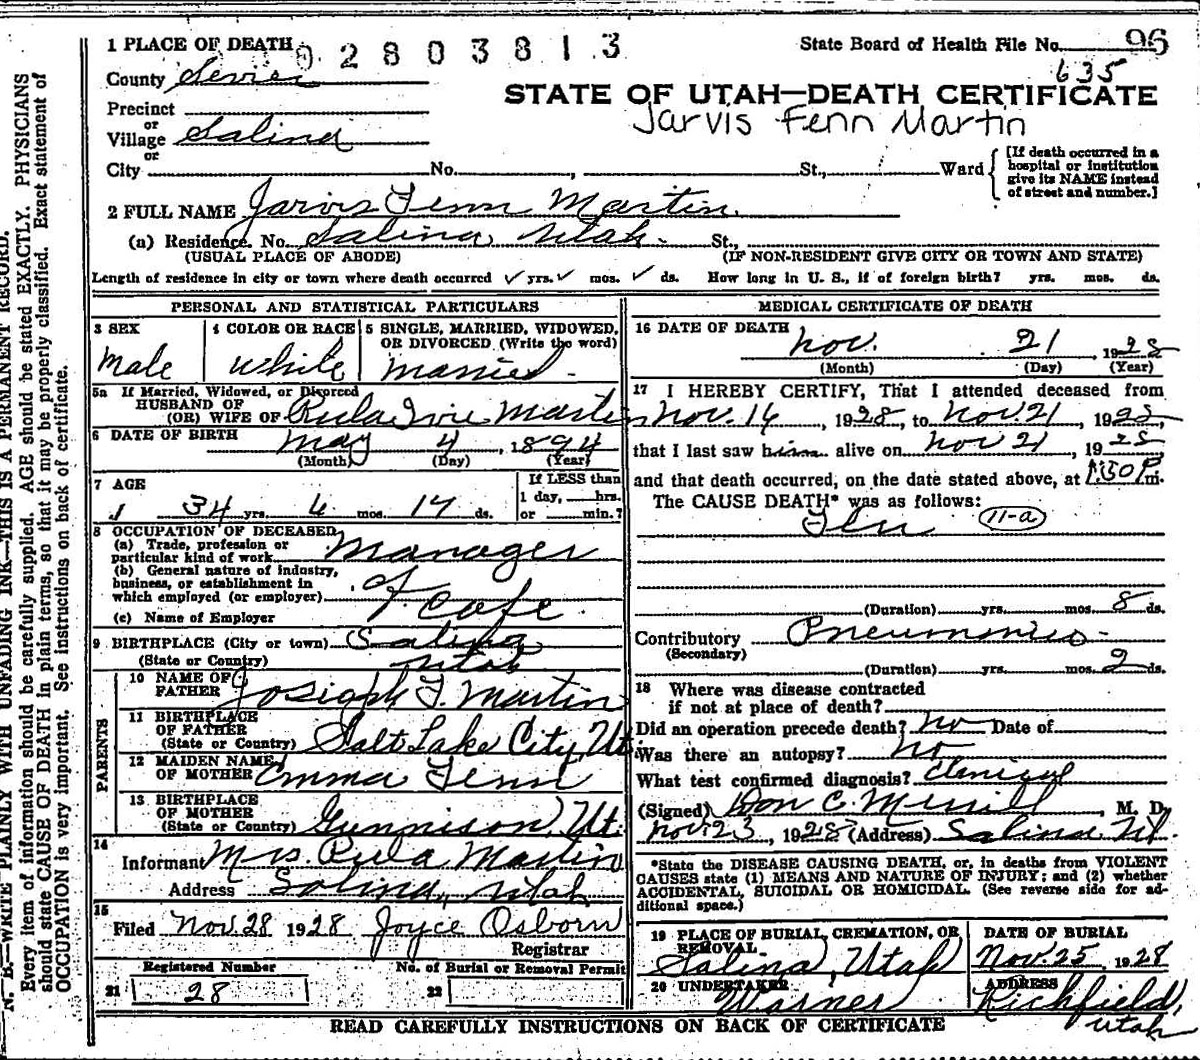 1 PLACE OF DEARTH 02803813
State Board of Health File No. 96
County Sevier
635
STATE OF UTAH—DEATH CERTIFICATE
Jarvis Fenn Martin
Precinct
or
Village Salina
or
City No. , St., Ward
[If death occurred in a
hospital or institution
give its NAME instead
of street and number.]
2 FULL NAME Jarvis Fenn Martin.
(a) Residence. No. Salina Utah. St.,
(USUAL PLACE OF ABODE) (IF NON-RESIDENT GIVE CITY OR TOWN AND STATE)
Length of residence in city or town where death occurred ✓ yrs. ✓ mos. ✓ ds. How long in U. S., if of foreign birth? yrs. mos. ds.
PERSONAL AND STATISTICAL PARTICULARS
3 SEX
Male
4 COLOR OR RACE
White
5 SINGLE, MARRIED, WIDOWED,
OR DIVORCED (Write the word)
Married.
5a If Married, Widowed, or Divorced
HUSBAND OF
(OR) WIFE OF Rula Ivie Martin
6 DATE OF BIRTH May 4, 1894
(Month) (Day) (Year)
7 AGE
34 yrs. 6 mos. 17 ds.
If LESS than
1 day, hrs.
or min.?
8 OCCUPATION OF DECEASED
(a) Trade, profession or
particular kind of work Manager
(b) General nature of industry,
business, or establishment in
which employed (or employer) of Cafe
(c) Name of Employer
9 BIRTHPLACE (City or town) Salina
(State or Country) Utah
PARENTS
10 NAME OF
FATHER Josieph F. Martin
11 BIRTHPLACE
OF FATHER
(State or Country) Salt Lake City, Ut.
12 MAIDEN NAME
OF MOTHER Emma Fenn
13 BIRTHPLACE
OF MOTHER
(State or Country) Gunnison, Ut.
14
Informant Mrs Rula Martin
Address Salina, Utah
15
Filed Nov. 28 1928 Joyce Osborn
Registrar
Registered Number
21 28
No. of Burial or Removal Permit
22
MEDICAL CERTIFICATE OF DEATH
16 DATE OF DEATH
Nov. 21, 1928
(Month) (Day) (Year)
17 I HEREBY CERTIFY, That I attended deceased from
Nov. 14, 1928, to Nov. 21, 1928,
that I last saw him alive on Nov 21, 1928
and that death occurred, on the date stated above, at 1:30 P.m.
The CAUSE DEATH* was as follows:
Flu 11-a
(Duration) yrs. mos. 8 ds.
Contributory Pneumonia
(Secondary)
(Duration) yrs. mos. 2 ds.
18 Where was disease contracted
if not at place of death?
Did an operation precede death? no Date of
Was there an autopsy? no
What test confirmed diagnosis? Clinical
(Signed) Don C. Merrill, M. D.
Nov. 23, 1928 (Address) Salina. Ut.
*State the DISEASE CAUSING DEATH, or, in deaths from VIOLENT
CAUSES state (1) MEANS AND NATURE OF INJURY; and (2) whether
ACCIDENTAL, SUICIDAL OR HOMICIDAL. (See reverse side for ad-
ditional space.)
19 PLACE OF BURIAL, CREMATION, OR
REMOVAL
Salina, Utah
DATE OF BURIAL
Nov. 25 1928
20 UNDERTAKER
Warner
ADDRESS
Richfield,
Utah
READ CAREFULLY INSTRUCTIONS ON BACK OF CERTIFICATE
N. B.—WRITE PLAINLY WITH UNFADING INK—THIS IS A PERMANENT RECORD.
Every item of information should be carefully supplied. AGE should be stated EXACTLY. PHYSICIANS
should state CAUSE OF DEATH in plain terms, so that it may be properly classified. Exact statement of
OCCUPATION is very important. See instructions on back of certificate.